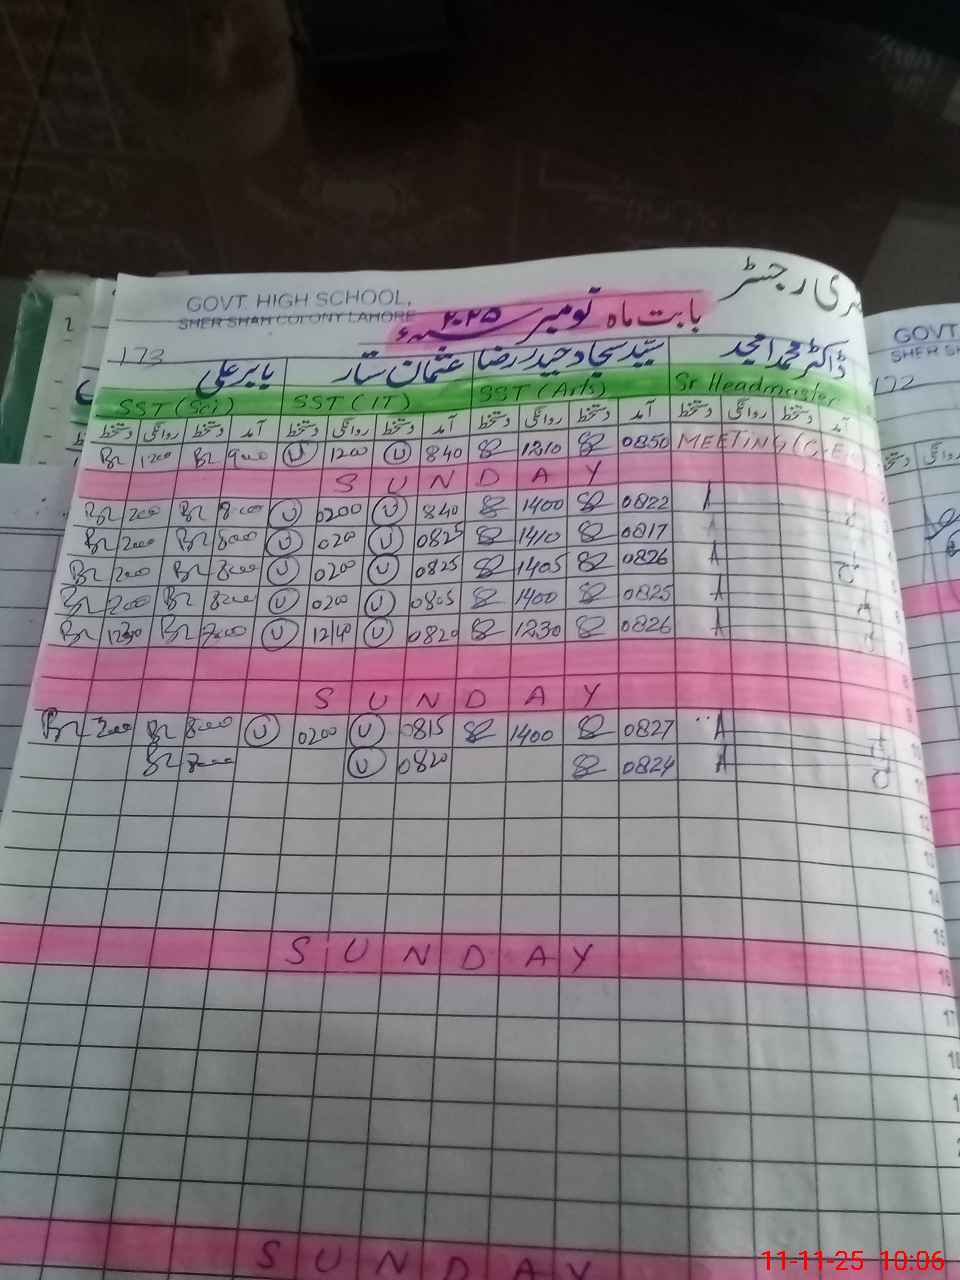 GOVT. HIGH SCHOOL,
SHER SHAH COLONY LAHORE
ری رجسٹر
بابت ماہ نومبر ۲۰۲۵ء
173
ڈاکٹر محمد امجد
سید سجاد حیدر رضا
عثمان ستار
بابر علی
SST (Sci) SST (IT) SST (Arts) Sr Headmaster
دستخط روانگی دستخط آمد دستخط روانگی دستخط آمد دستخط روانگی دستخط آمد دستخط روانگی دستخط آمد
1200 900 U 1200 U 840 1210 0850 MEETING
S U N D A Y
200 800 U 0200 U 840 1400 0822 A
200 800 U 0200 U 0825 1410 0817 A
200 800 U 0200 U 0825 1405 0826 A
200 800 U 0200 U 0805 1400 0825 A
1230 U 1240 U 0820 1230 0826 A
S U N D A Y
200 800 U 0200 U 0815 1400 0827 A
800 U 0820 0824 A
S U N D A Y
S U N D A Y
GOVT
SHER SH
172
7
8
9
10
11
12
13
14
15
16
17
11-11-25 10:06